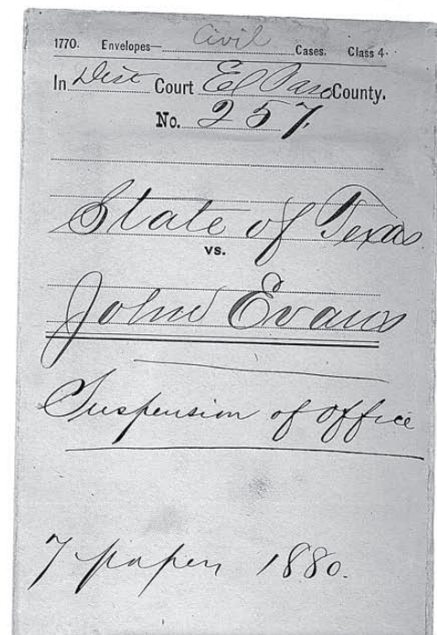 1770. Envelopes— Civil Cases. Class 4.
In Dist Court El Paso County.
No. 257.
State of Texas
vs.
John Evans
Suspension of Office
7 papers 1880.